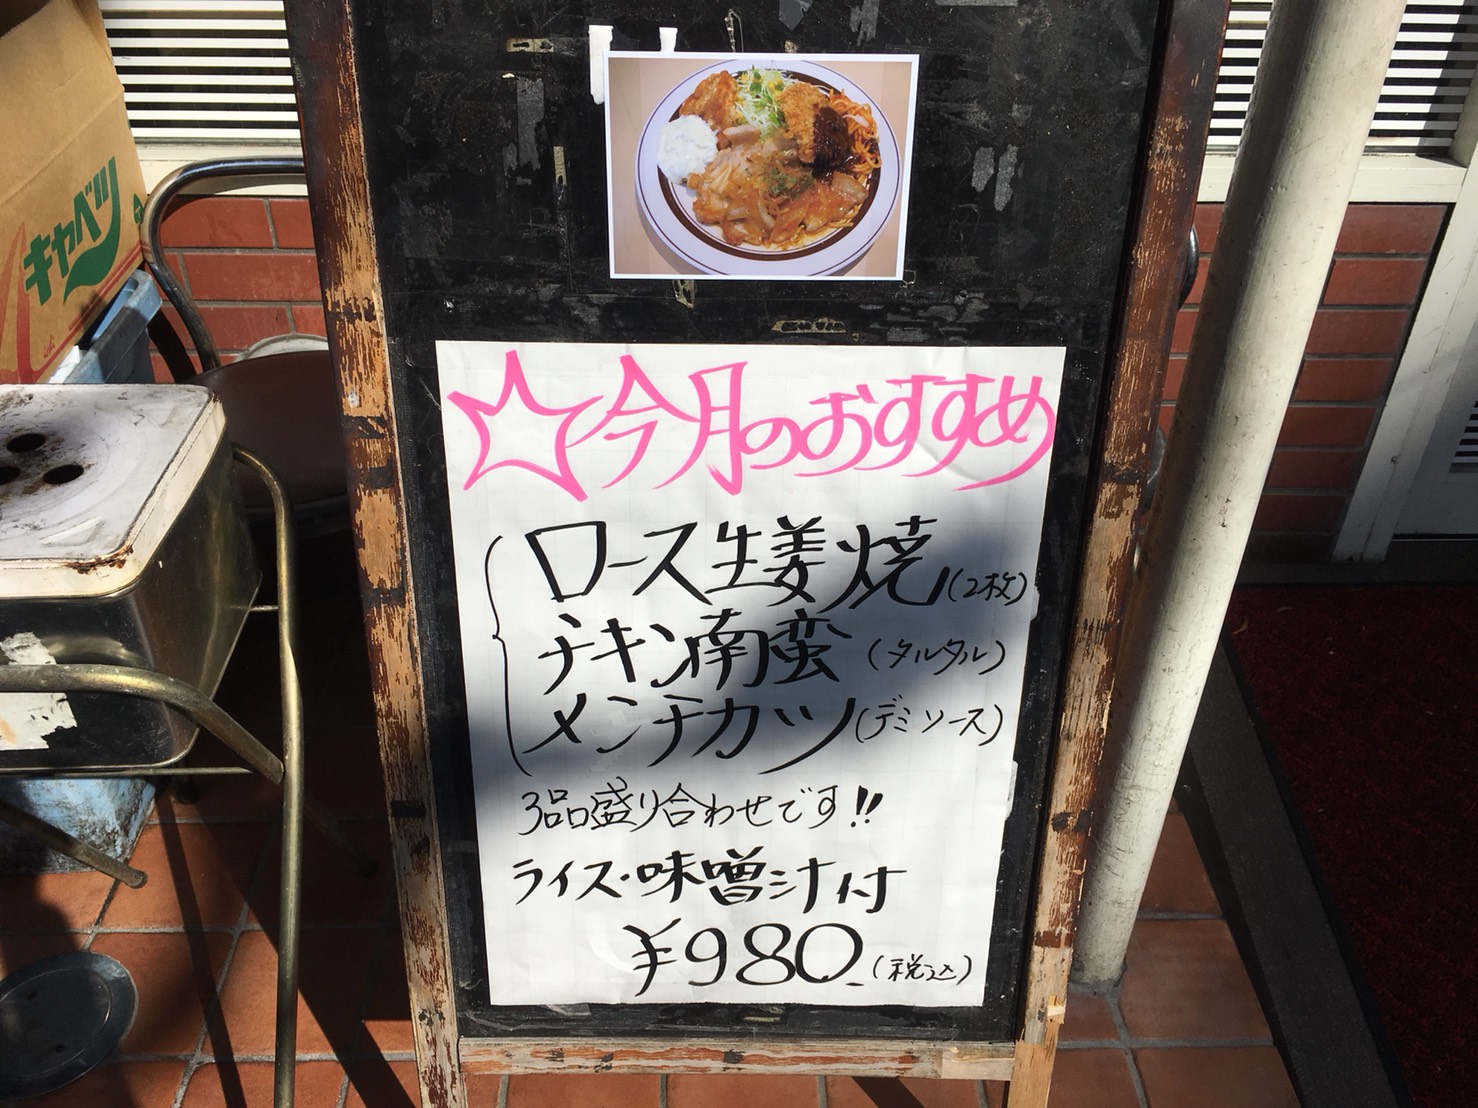 キャベツ
☆今月のおすすめ
ロース生姜焼(2枚)
チキン南蛮(タルタル)
メンチカツ(デミソース)
3品盛り合わせです!!
ライス・味噌汁付
¥980(税込)